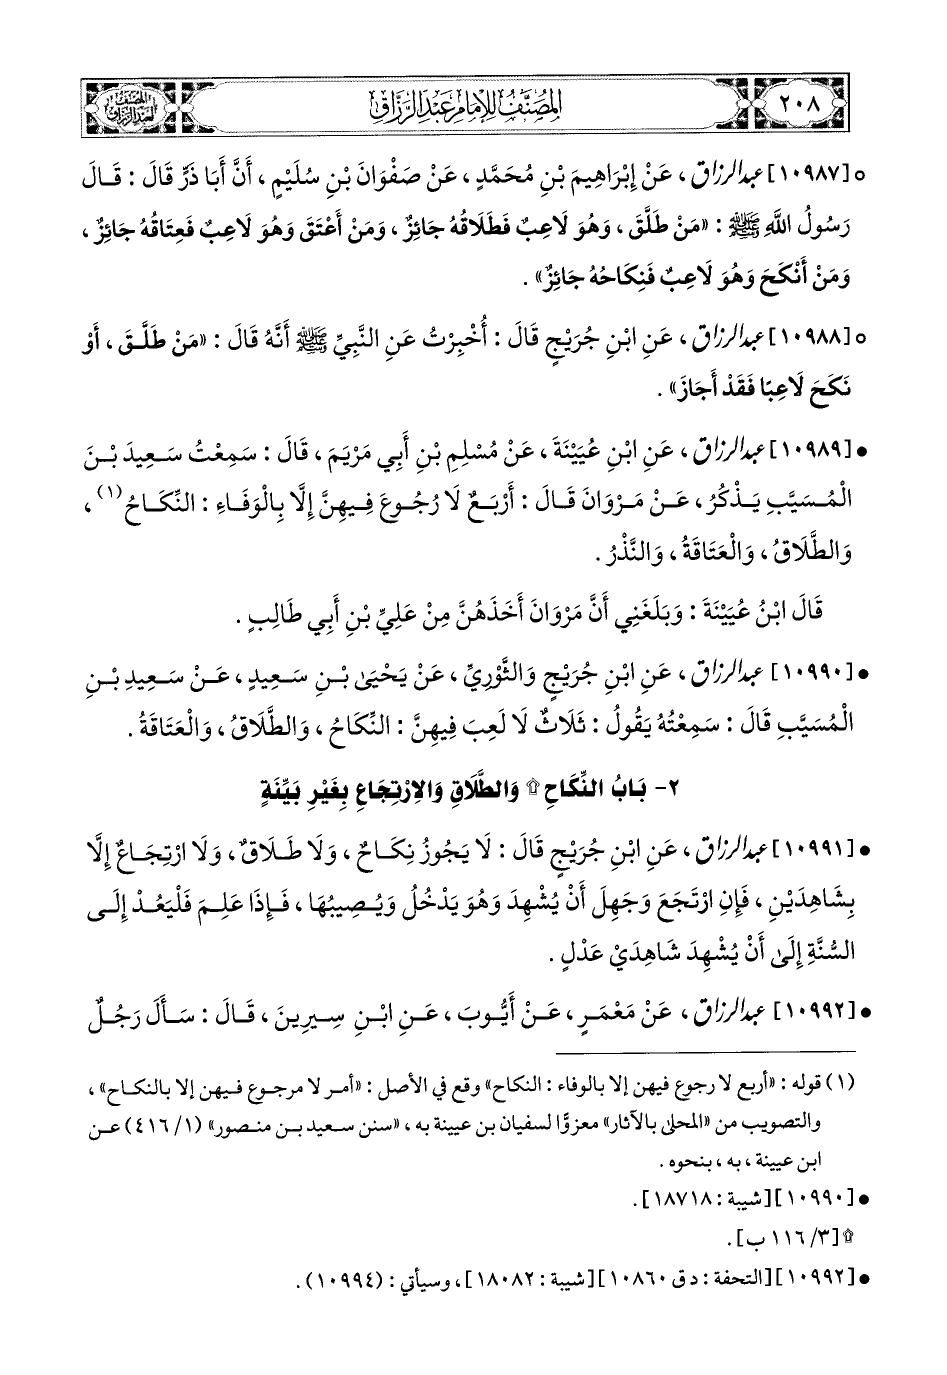 ٢٠٨
المُصَنَّفُ لِلإِمَامِ عَبْدِ الرَّزَّاقِ
المصنف لعبد الرزاق
○ [١٠٩٨٧] عبد الرزاق، عَنْ إِبْرَاهِيمَ بْنِ مُحَمَّدٍ، عَنْ صَفْوَانَ بْنِ سُلَيْمٍ، أَنَّ أَبَا ذَرٍّ قَالَ: قَالَ
رَسُولُ اللَّهِ ﷺ: «مَنْ طَلَّقَ، وَهُوَ لَاعِبٌ فَطَلَاقُهُ جَائِزٌ، وَمَنْ أَعْتَقَ وَهُوَ لَاعِبٌ فَعِتَاقُهُ جَائِزٌ،
وَمَنْ أَنْكَحَ وَهُوَ لَاعِبٌ فَنِكَاحُهُ جَائِزٌ».
○ [١٠٩٨٨] عبد الرزاق، عَنِ ابْنِ جُرَيْجٍ قَالَ: أُخْبِرْتُ عَنِ النَّبِيِّ ﷺ أَنَّهُ قَالَ: «مَنْ طَلَّقَ، أَوْ
نَكَحَ لَاعِبًا فَقَدْ أَجَازَ».
● [١٠٩٨٩] عبد الرزاق، عَنِ ابْنِ عُيَيْنَةَ، عَنْ مُسْلِمِ بْنِ أَبِي مَرْيَمَ، قَالَ: سَمِعْتُ سَعِيدَ بْنَ
الْمُسَيَّبِ يَذْكُرُ، عَنْ مَرْوَانَ قَالَ: أَرْبَعٌ لَا رُجُوعَ فِيهِنَّ إِلَّا بِالْوَفَاءِ: النِّكَاحُ(١)،
وَالطَّلَاقُ، وَالْعَتَاقَةُ، وَالنَّذْرُ.
قَالَ ابْنُ عُيَيْنَةَ: وَبَلَغَنِي أَنَّ مَرْوَانَ أَخَذَهُنَّ مِنْ عَلِيِّ بْنِ أَبِي طَالِبٍ.
● [١٠٩٩٠] عبد الرزاق، عَنِ ابْنِ جُرَيْجٍ وَالثَّوْرِيِّ، عَنْ يَحْيَى بْنِ سَعِيدٍ، عَنْ سَعِيدِ بْنِ
الْمُسَيَّبِ قَالَ: سَمِعْتُهُ يَقُولُ: ثَلَاثٌ لَا لَعِبَ فِيهِنَّ: النِّكَاحُ، وَالطَّلَاقُ، وَالْعَتَاقَةُ.
٢- بَابُ النِّكَاحِ۩ وَالطَّلَاقِ وَالِارْتِجَاعِ بِغَيْرِ بَيِّنَةٍ
● [١٠٩٩١] عبد الرزاق، عَنِ ابْنِ جُرَيْجٍ قَالَ: لَا يَجُوزُ نِكَاحٌ، وَلَا طَلَاقٌ، وَلَا ارْتِجَاعٌ إِلَّا
بِشَاهِدَيْنِ، فَإِنِ ارْتَجَعَ وَجَهِلَ أَنْ يُشْهِدَ وَهُوَ يَدْخُلُ وَيُصِيبُهَا، فَإِذَا عَلِمَ فَلْيَعُدْ إِلَى
السُّنَّةِ إِلَى أَنْ يُشْهِدَ شَاهِدَيْ عَدْلٍ.
● [١٠٩٩٢] عبد الرزاق، عَنْ مَعْمَرٍ، عَنْ أَيُّوبَ، عَنِ ابْنِ سِيرِينَ، قَالَ: سَأَلَ رَجُلٌ
(١) قوله: «أربع لا رجوع فيهن إلا بالوفاء: النكاح» وقع في الأصل: «أمر لا مرجوع فيهن إلا بالنكاح»،
والتصويب من «المحلى بالآثار» معزوًّا لسفيان بن عيينة به، «سنن سعيد بن منصور» (١/ ٤١٦) عن
ابن عيينة، به، بنحوه.
● [١٠٩٩٠] [شيبة: ١٨٧١٨].
۩ [٣/ ١١٦ ب].
● [١٠٩٩٢] [التحفة: د ق ١٠٨٦٠] [شيبة: ١٨٠٨٢]، وسيأتي: (١٠٩٩٤).